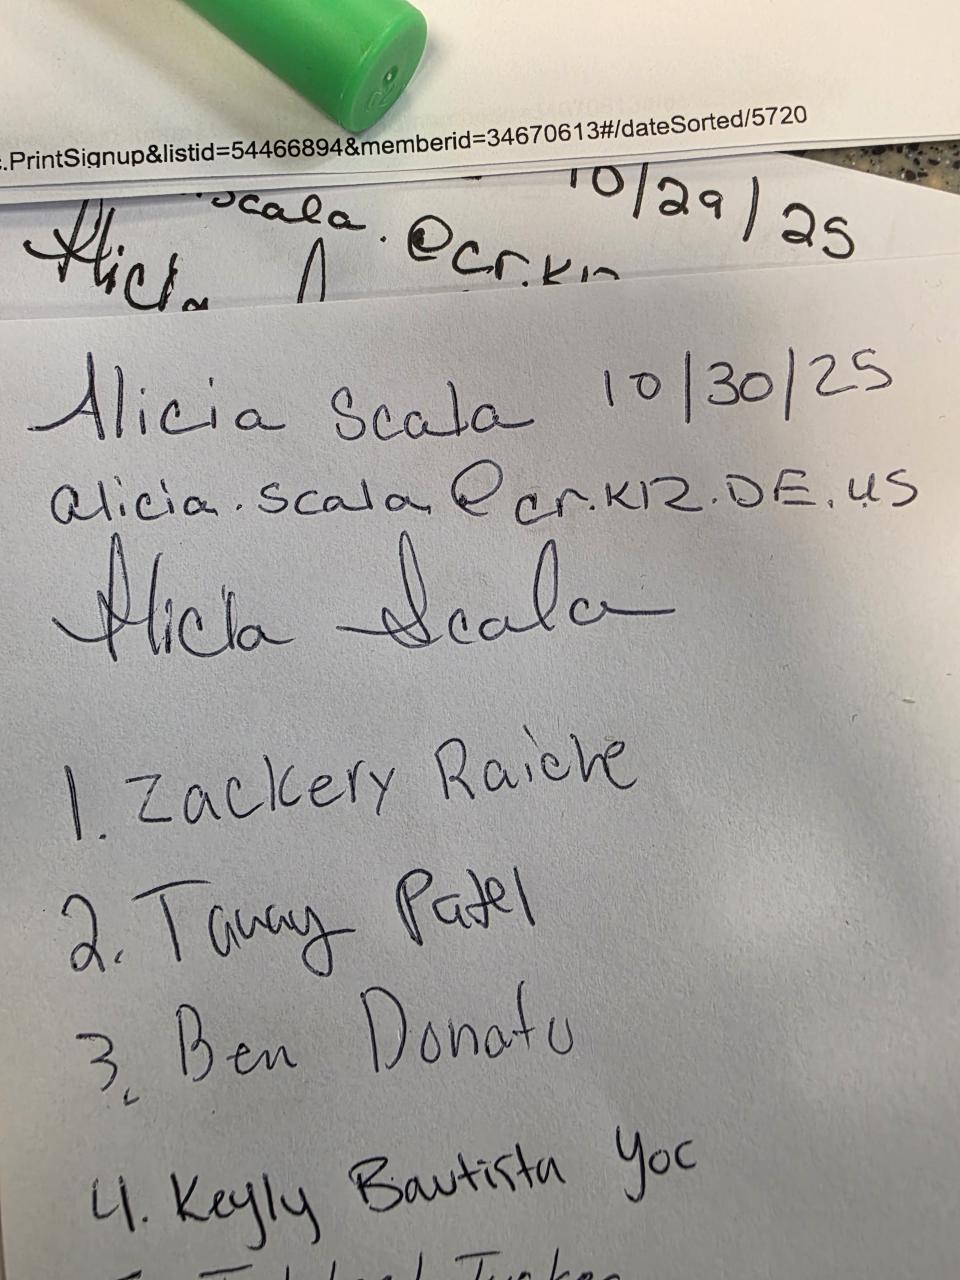 c.PrintSignup&listid=54466894&memberid=34670613#/dateSorted/5720
10/29/25
scala.@cr.K12
Alicia
Alicia Scala 10/30/25
alicia.scala@cr.K12.DE.US
Alicia Scala
1. Zackery Raiche
2. Tanay Patel
3. Ben Donato
4. Keyly Bautista Yoc